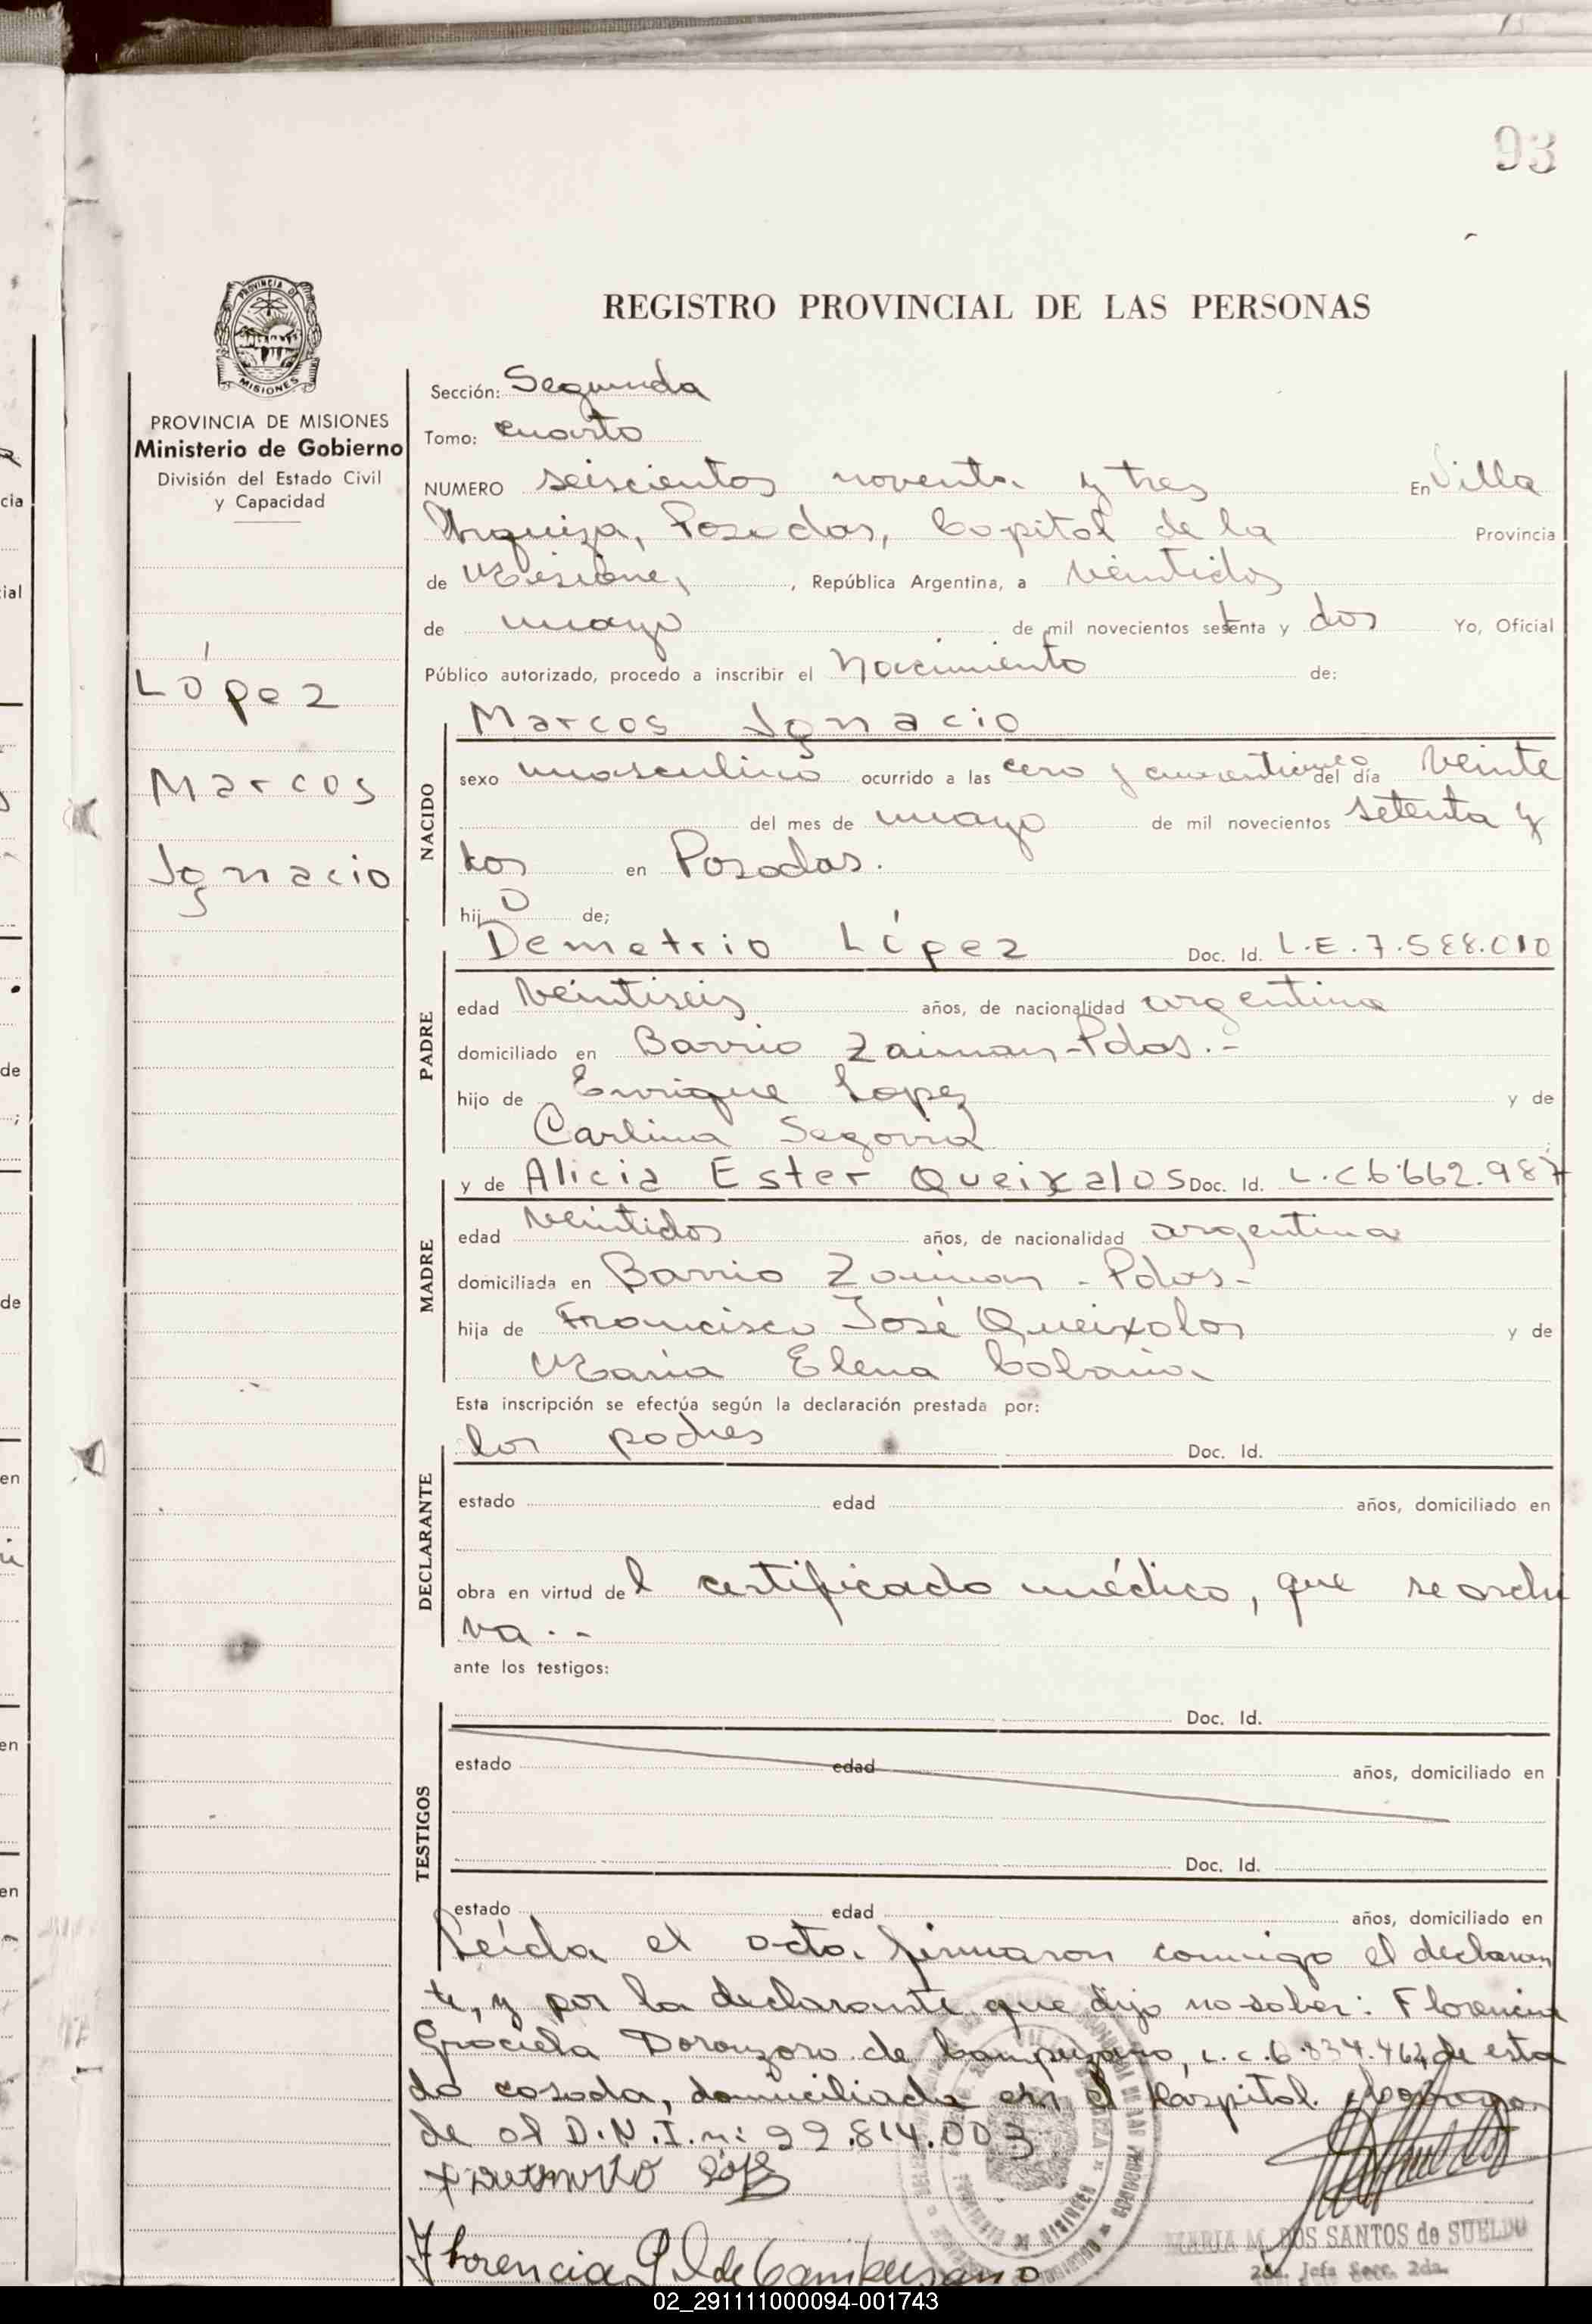 93
REGISTRO PROVINCIAL DE LAS PERSONAS
PROVINCIA DE MISIONES
Ministerio de Gobierno
División del Estado Civil
y Capacidad
López
Marcos
Ignacio
Sección: Segunda
Tomo: cuarto
NUMERO seiscientos noventa y tres En Villa
Urquiza, Posadas, Capital de la Provincia
de Misiones, , República Argentina, a veintidos
de mayo de mil novecientos setenta y dos Yo, Oficial
Público autorizado, procedo a inscribir el Nacimiento de:
NACIDO
Marcos Ignacio
sexo masculino ocurrido a las cero y cuarenticinco del día veinte
del mes de mayo de mil novecientos setenta y
dos en Posadas.
hijo de;
PADRE
Demetrio López Doc. Id. L.E. 7.588.010
edad veintiseis años, de nacionalidad argentina
domiciliado en Barrio Zaiman-Pdas.-
hijo de Enrique Lopez y de
Carlina Segovia
MADRE
y de Alicia Ester Queixalos Doc. Id. L.C 6.662.987
edad veintidos años, de nacionalidad argentina
domiciliada en Barrio Zaiman - Pdas-
hija de Francisco José Queixalos y de
Maria Elena
Esta inscripción se efectúa según la declaración prestada por:
DECLARANTE
los padres Doc. Id.
estado edad años, domiciliado en
obra en virtud del certificado médico, que se archi
va.-
ante los testigos:
TESTIGOS
Doc. Id.
estado edad años, domiciliado en
Doc. Id.
estado edad años, domiciliado en
Leída el acta firmaron conmigo el declaran
te, y por la declarante que dijo no saber: Florencia
Graciela de Campuzano, L.C. 6.834.462, de esta
do casada, domiciliada en el Hospital.
de al D.N.I. n: 22.814.003
Florencia de Campuzano
MARIA M. DOS SANTOS de SUELDO
2da. Jefa Secc. 2da.
02_291111000094-001743